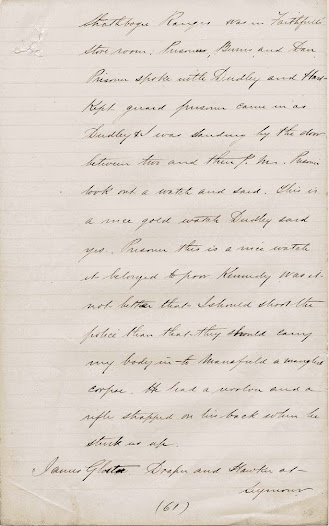 Strathbogie Ranges was in Faithfulls
store room. Prisoner, Burns and Dan
Prisoner spoke with Dudley and Hart
kept guard prisoner came in as
Dudley & I was standing by the door
between two and three P.m. Prisoner
took out a watch and said. This is
a nice gold watch Dudley said
yes. Prisoner this is a nice watch
it belonged to poor Kennedy was it
not better that I should shoot the
police than that they should carry
my body in to Mansfield a mangled
corpse. He had a revolver and a
rifle strapped on his back when he
stuck us up.
James Gloster Draper and Hawker at
Seymour
(61)